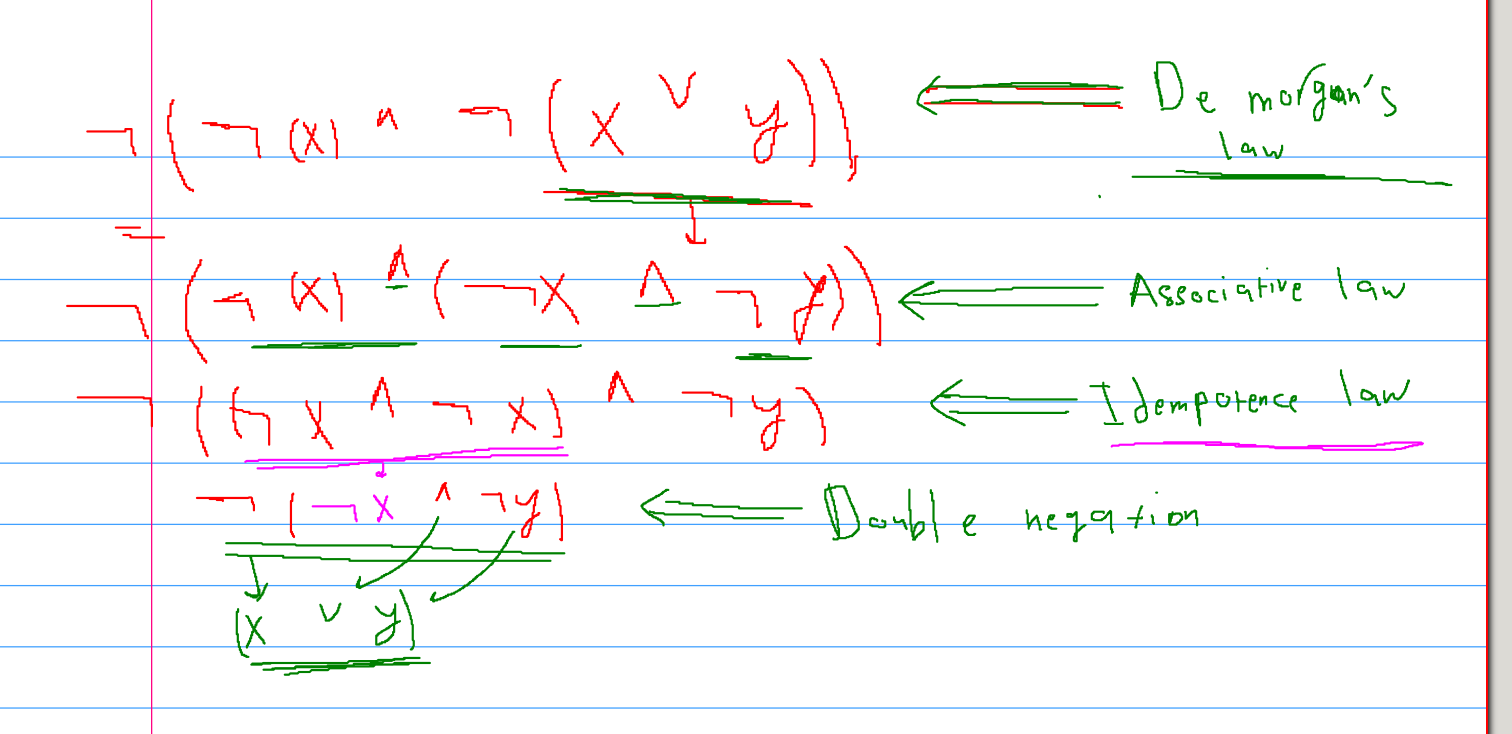 ¬(¬(x) ^ ¬(x ∨ y)) ⇐ De morgan's
law
=
¬(¬(x) ^ (¬x ^ ¬y)) ⇐ Associative law
¬((¬x ^ ¬x) ^ ¬y) ⇐ Idempotence law
¬(¬x ^ ¬y) ⇐ Double negation
(x ∨ y)